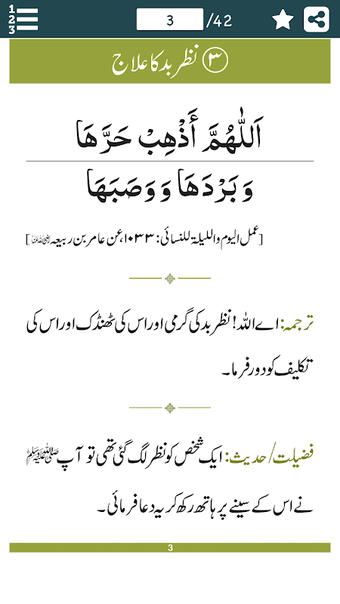 1
2
3
3 /42
③ نظر بد کا علاج
اَللّٰهُمَّ أَذْهِبْ حَرَّهَا
وَبَرْدَهَا وَوَصَبَهَا
[عمل الیوم واللیلۃ للنسائی: ۱۰۳۳، عن عامر بن ربیعہ ؓ]
ترجمہ: اے اللہ! نظر بد کی گرمی اور اس کی ٹھنڈک اور اس کی
تکلیف کو دور فرما۔
فضیلت/حدیث: ایک شخص کو نظر لگ گئی تھی تو آپ ﷺ
نے اس کے سینے پر ہاتھ رکھ کر یہ دعا فرمائی۔
3